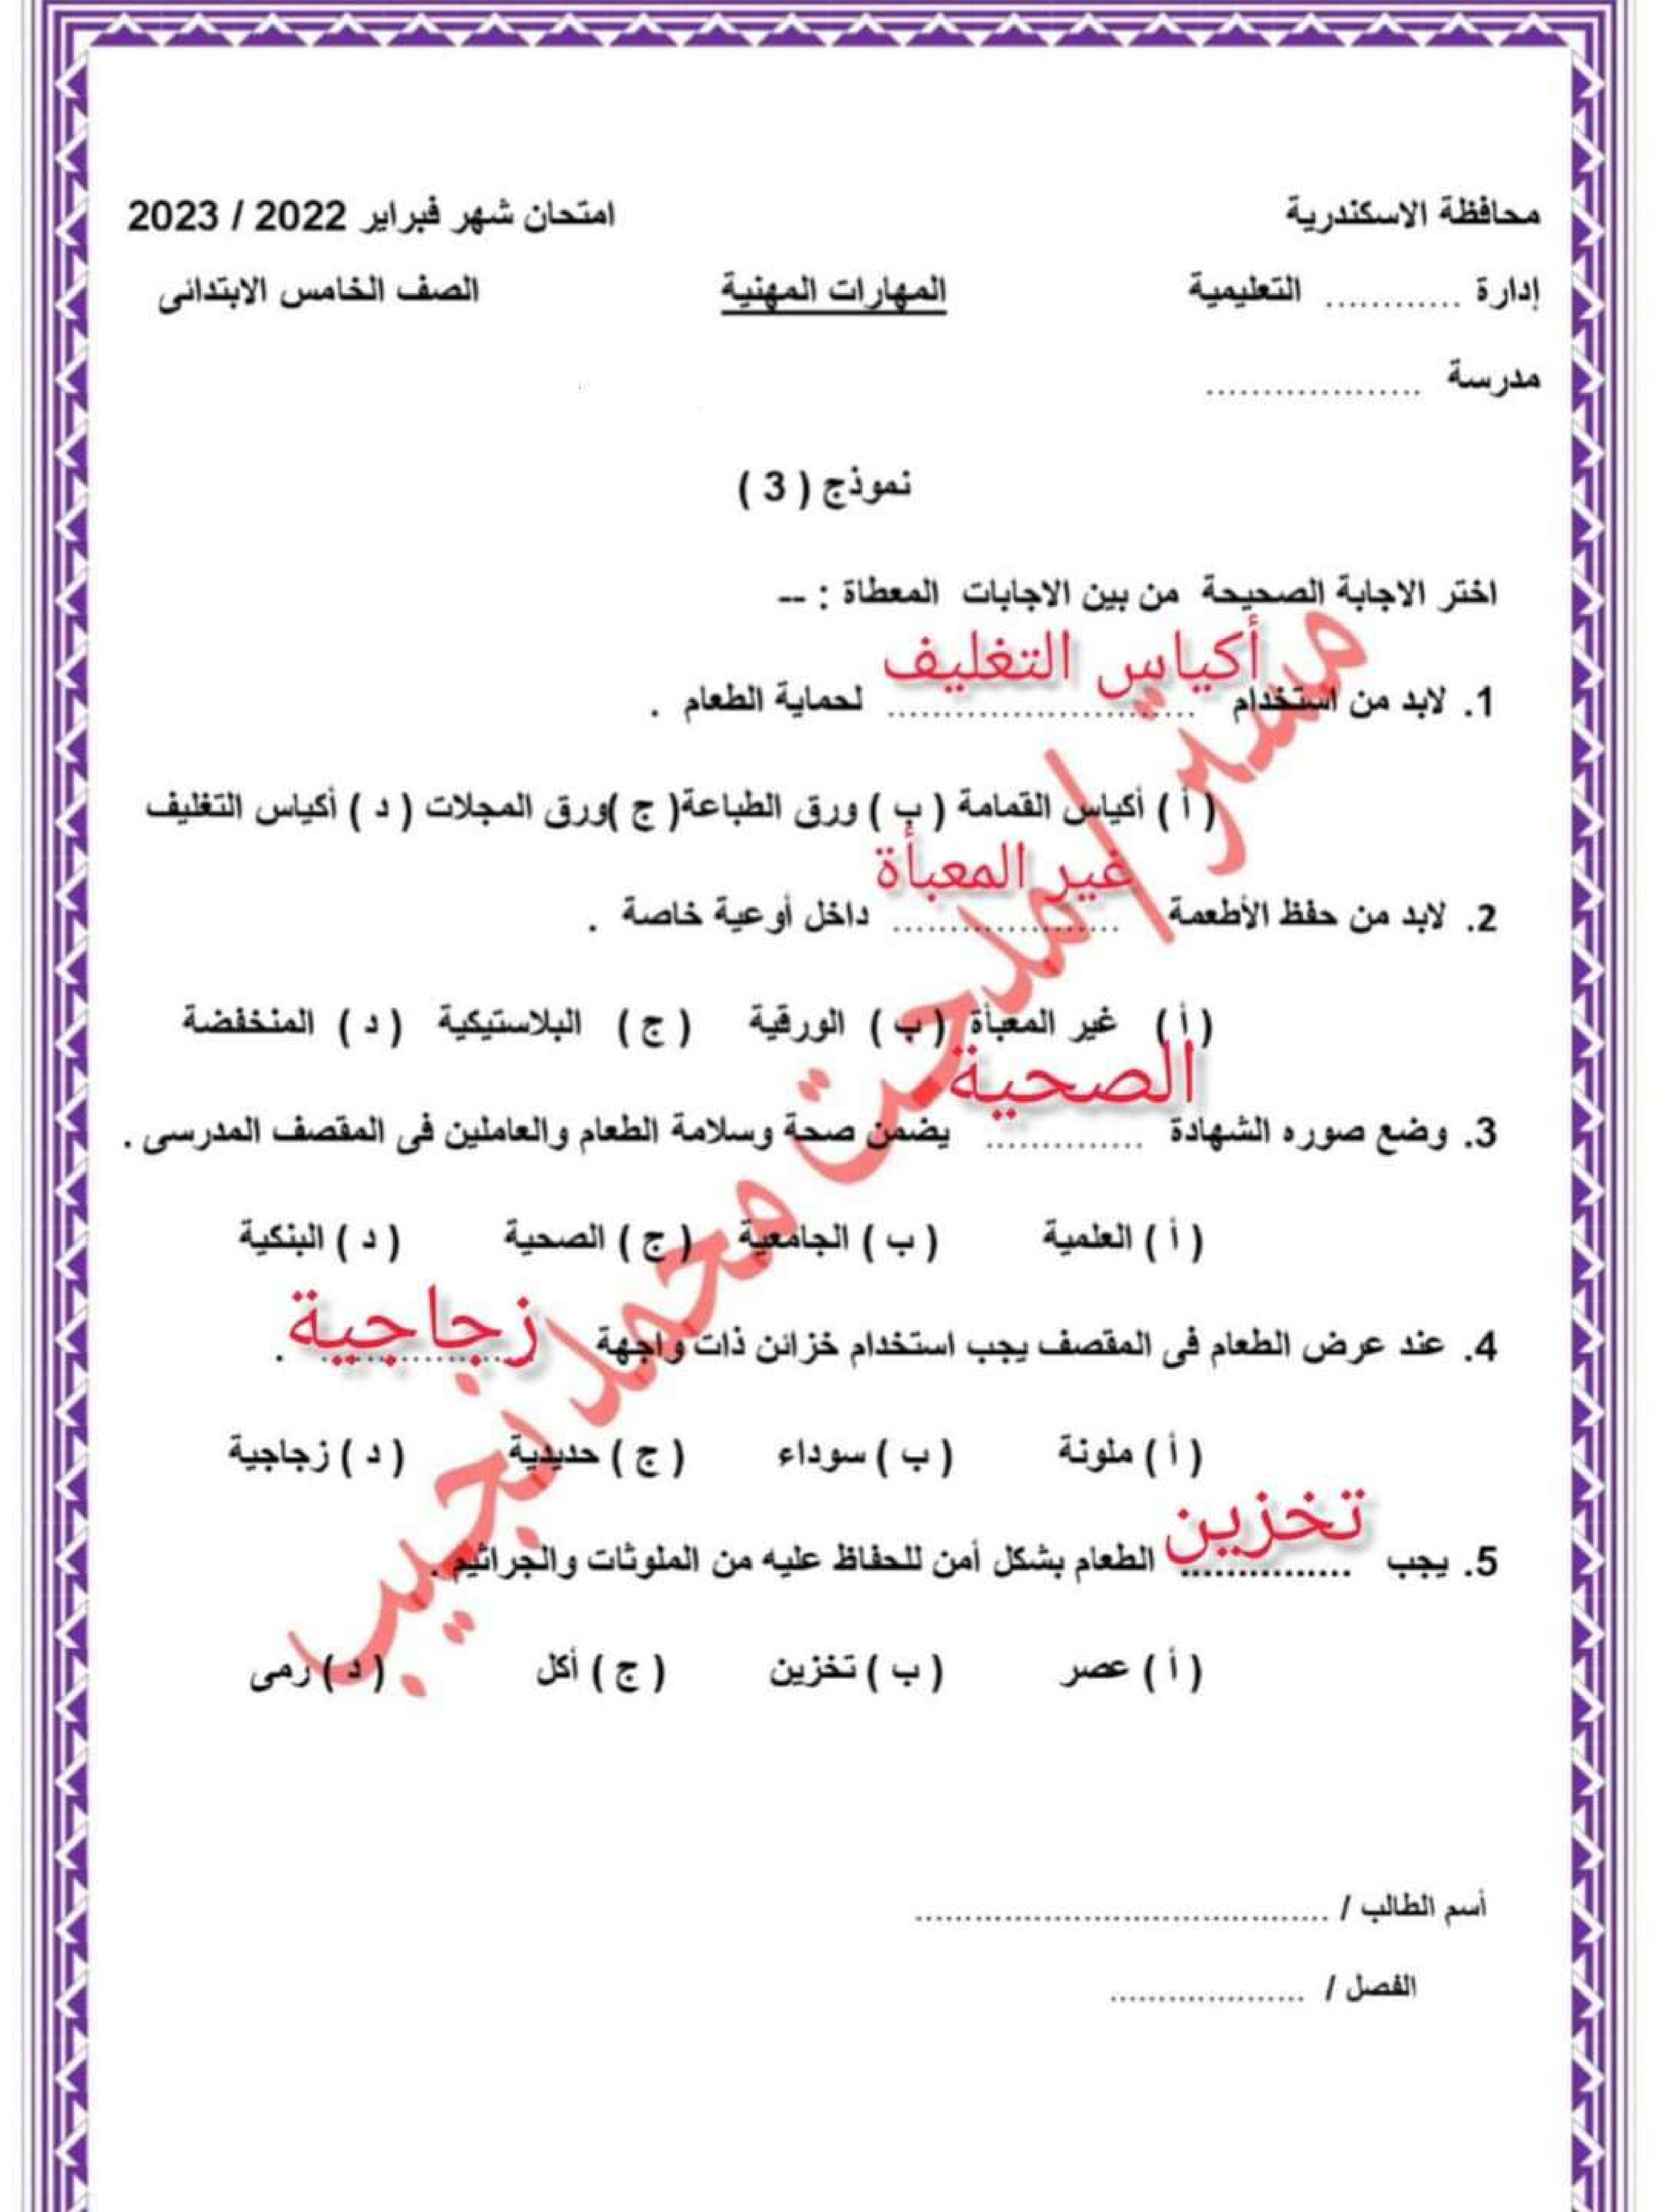 محافظة الاسكندرية امتحان شهر فبراير 2022 / 2023
إدارة ............ التعليمية المهارات المهنية الصف الخامس الابتدائى
مدرسة ...................
نموذج ( 3 )
اختر الاجابة الصحيحة من بين الاجابات المعطاة : --
أكياس التغليف
1. لابد من استخدام ........................... لحماية الطعام .
( أ ) أكياس القمامة ( ب ) ورق الطباعة( ج )ورق المجلات ( د ) أكياس التغليف
غير المعبأة
2. لابد من حفظ الأطعمة .................... داخل أوعية خاصة .
( أ ) غير المعبأة ( ب ) الورقية ( ج ) البلاستيكية ( د ) المنخفضة
الصحية
3. وضع صوره الشهادة .............. يضمن صحة وسلامة الطعام والعاملين فى المقصف المدرسى .
( أ ) العلمية ( ب ) الجامعية ( ج ) الصحية ( د ) البنكية
4. عند عرض الطعام فى المقصف يجب استخدام خزائن ذات واجهة زجاجية .................. .
( أ ) ملونة ( ب ) سوداء ( ج ) حديدية ( د ) زجاجية
تخزين
5. يجب ............... الطعام بشكل أمن للحفاظ عليه من الملوثات والجراثيم .
( أ ) عصر ( ب ) تخزين ( ج ) أكل ( د ) رمى
مستر/ ملحت محمد نجيب
أسم الطالب / ..........................................
الفصل / ....................